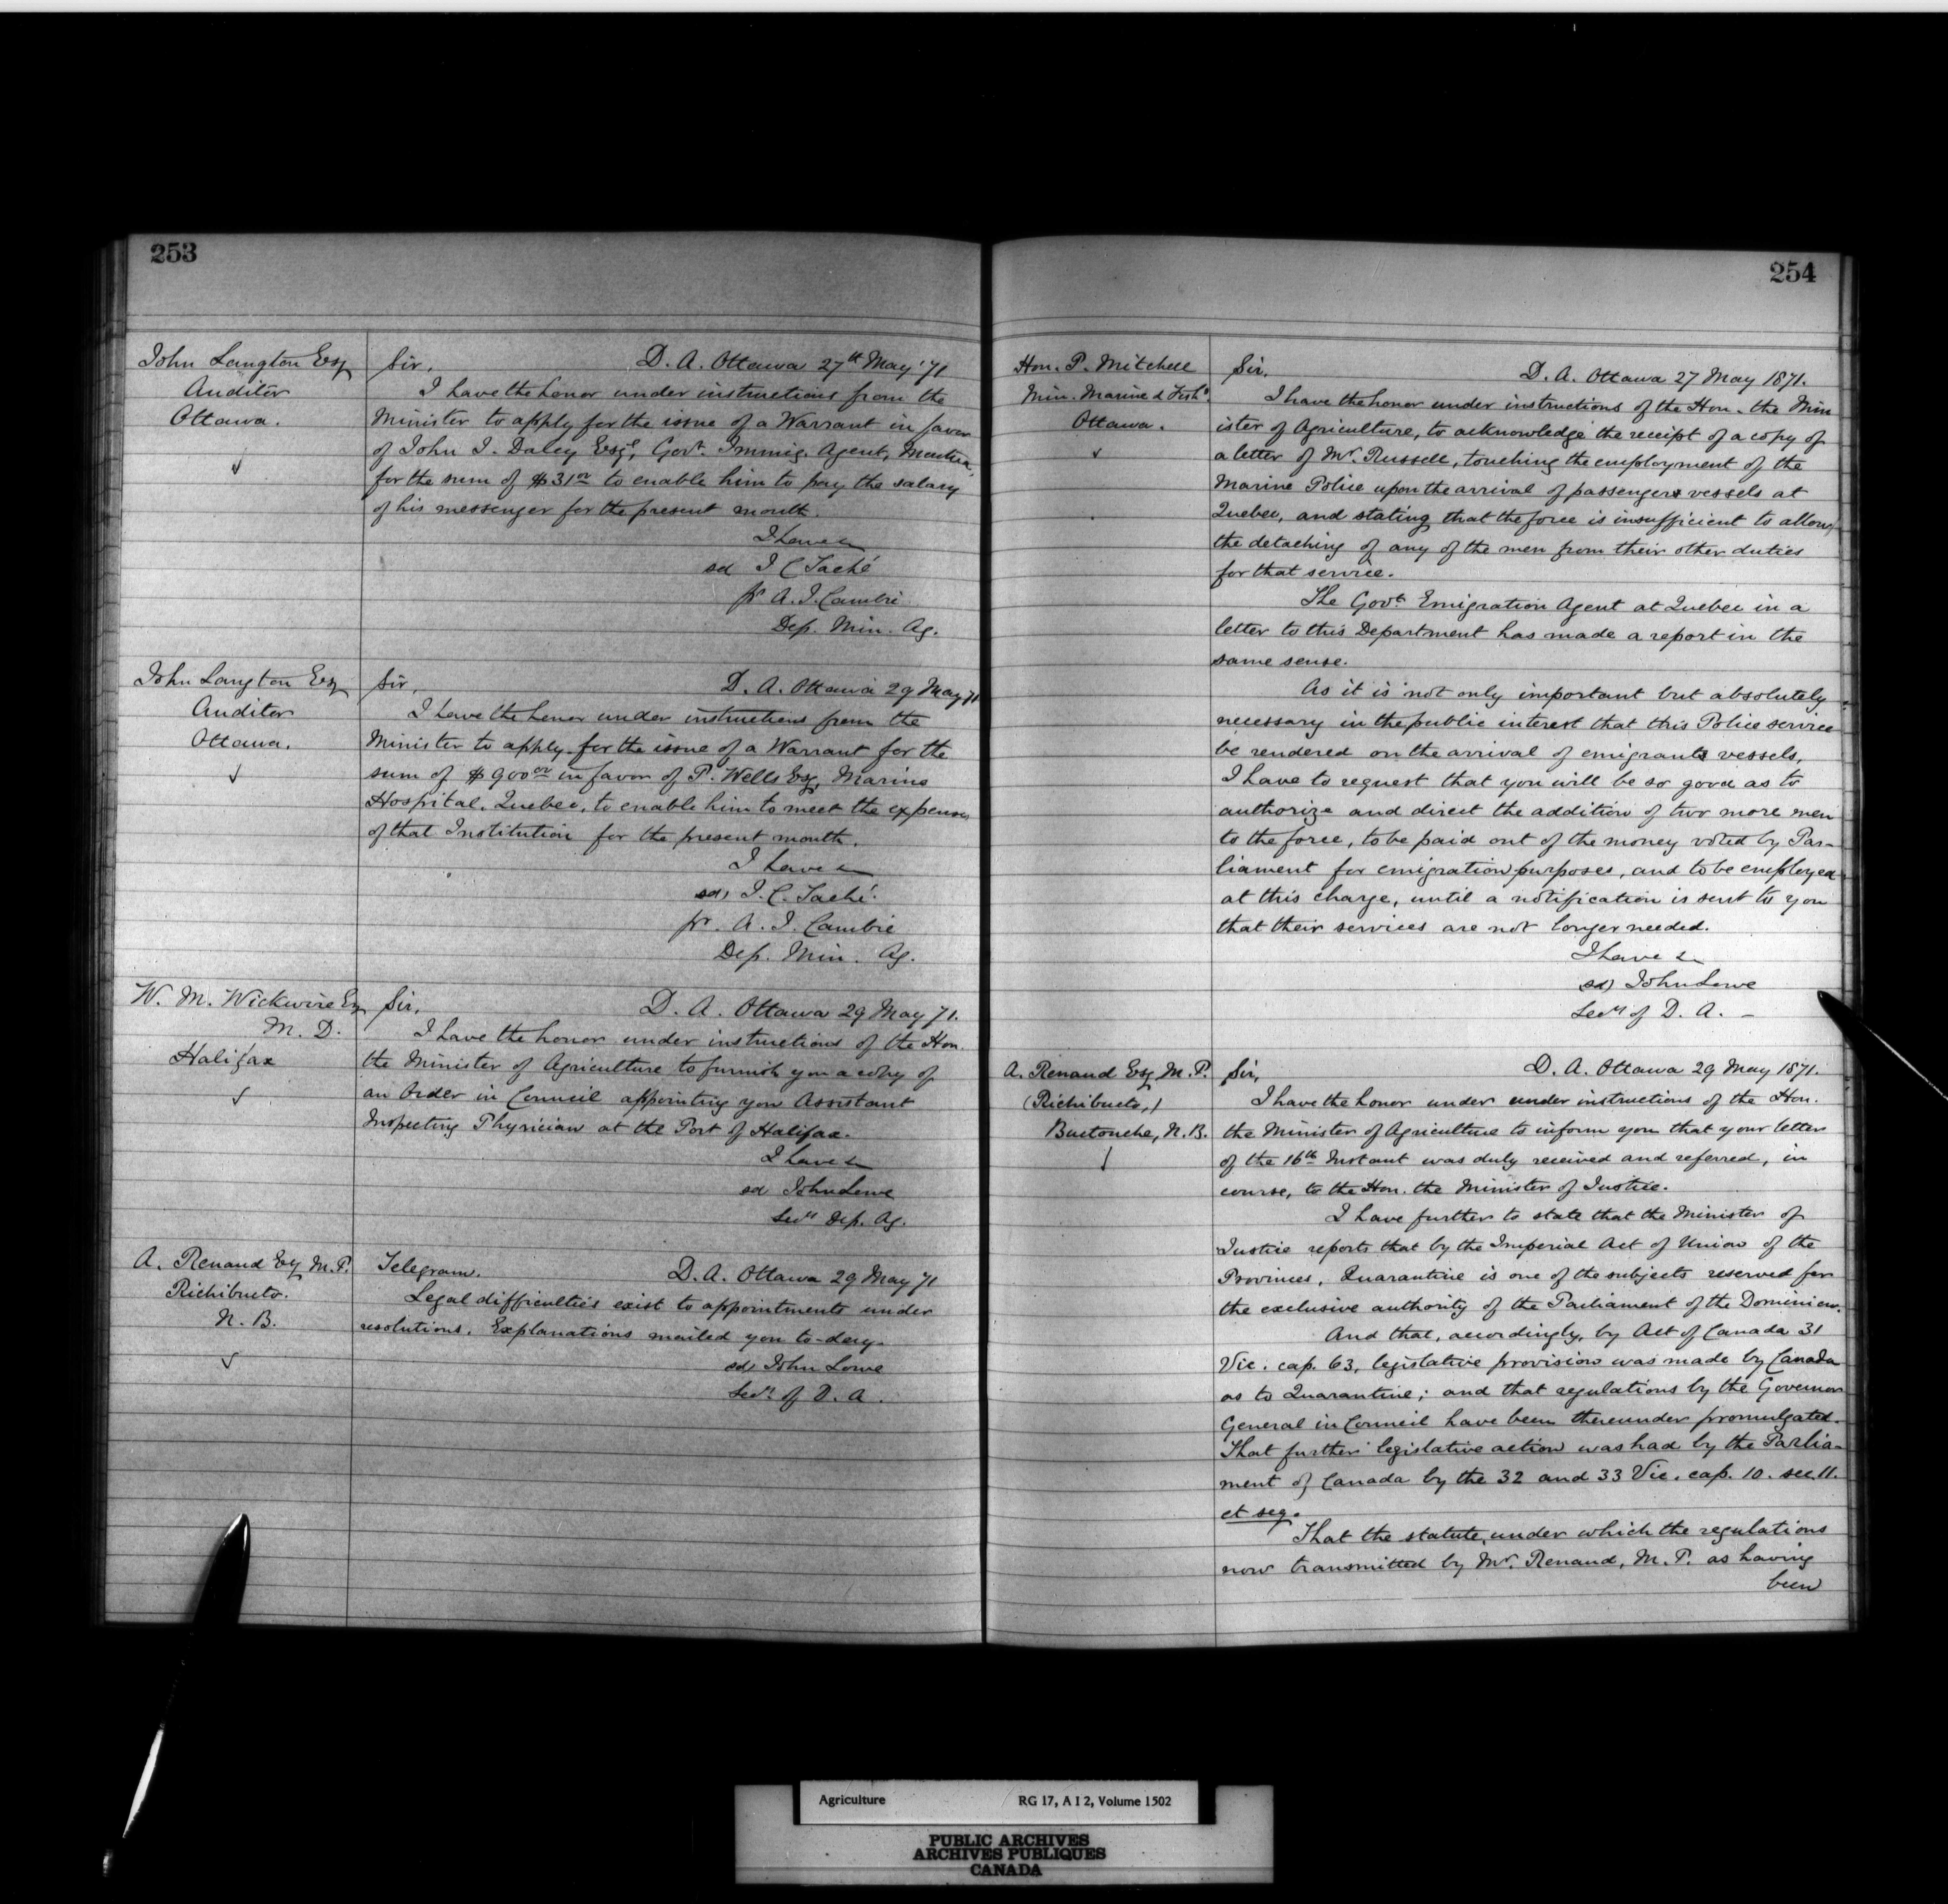 253
John Langton Esq
Auditor
Ottawa.
Sir, D. A. Ottawa 27th May '71
I have the honor under instructions from the
Minister to apply for the issue of a Warrant in favor
of John I. Daley Esqe, Govt. Immig. Agent,
for the sum of $31 00 to enable him to pay the salary
of his messenger for the present month.
I have &
sd J C Taché
pr A. J. Cambie
Dep. Min. Ag.
John Langton Esq
Auditor
Ottawa.
Sir, D. A. Ottawa 29 May 71
I have the honor under instructions from the
Minister to apply for the issue of a Warrant for the
sum of $900 00 in favor of P. Wells Esq, Marine
Hospital, Quebec, to enable him to meet the expenses
of that Institution for the present month.
I have &
sd) J. C. Taché.
pr. A. J. Cambie
Dep. Min. Ag.
W. M. Wickwire Esq
M. D.
Halifax
Sir, D. A. Ottawa 29 May 71.
I have the honor under instructions of the Hon.
the Minister of Agriculture to furnish you a copy of
an Order in Council appointing you Assistant
Inspecting Physician at the Port of Halifax.
I have &
sd John Lowe
Secy Dep. Ag.
A. Renaud Esq M.P.
Richibucto.
N. B.
Telegram. D. A. Ottawa 29 May 71
Legal difficulties exist to appointments under
resolutions. Explanations mailed you to-day.
sd) John Lowe
Secy of D. A.
254
Hon. P. Mitchell
Min. Marine & Fishs.
Ottawa.
Sir, D. A. Ottawa 27 May 1871.
I have the honor under instructions of the Hon. the Min
ister of Agriculture, to acknowledge the receipt of a copy of
a letter of Mr. Russell, touching the employment of the
Marine Police upon the arrival of passengers vessels at
Quebec, and stating that the force is insufficient to allow
the detaching of any of the men from their other duties
for that service.
The Govt. Emigration Agent at Quebec in a
letter to this Department has made a report in the
same sense.
As it is not only important but absolutely
necessary in the public interest that this Police service
be rendered on the arrival of emigrants vessels,
I have to request that you will be so good as to
authorize and direct the addition of two more men
to the force, to be paid out of the money voted by Par-
liament for emigration purposes, and to be employed
at this charge, until a notification is sent to you
that their services are not longer needed.
I have &
sd) John Lowe
Secy of D. A. -
A. Renaud Esq M.P.
(Richibucto,)
Buctouche, N.B.
Sir, D. A. Ottawa 29 May 1871.
I have the honor under under instructions of the Hon.
the Minister of Agriculture to inform you that your letter
of the 16th Instant was duly received and referred, in
course, to the Hon. the Minister of Justice.
I have further to state that the Minister of
Justice reports that by the Imperial Act of Union of the
Provinces, Quarantine is one of the subjects reserved for
the exclusive authority of the Parliament of the Dominion.
And that, accordingly, by Act of Canada 31
Vic. cap. 63, legislative provision was made by Canada
as to Quarantine; and that regulations by the Governor
General in Council have been thereunder promulgated.
That further legislative action was had by the Parlia-
ment of Canada by the 32 and 33 Vic. cap. 10. sec. 11.
et seq.
That the statute, under which the regulations
now transmitted by Mr. Renaud, M.P. as having
been
Agriculture RG 17, A I 2, Volume 1502
PUBLIC ARCHIVES
ARCHIVES PUBLIQUES
CANADA